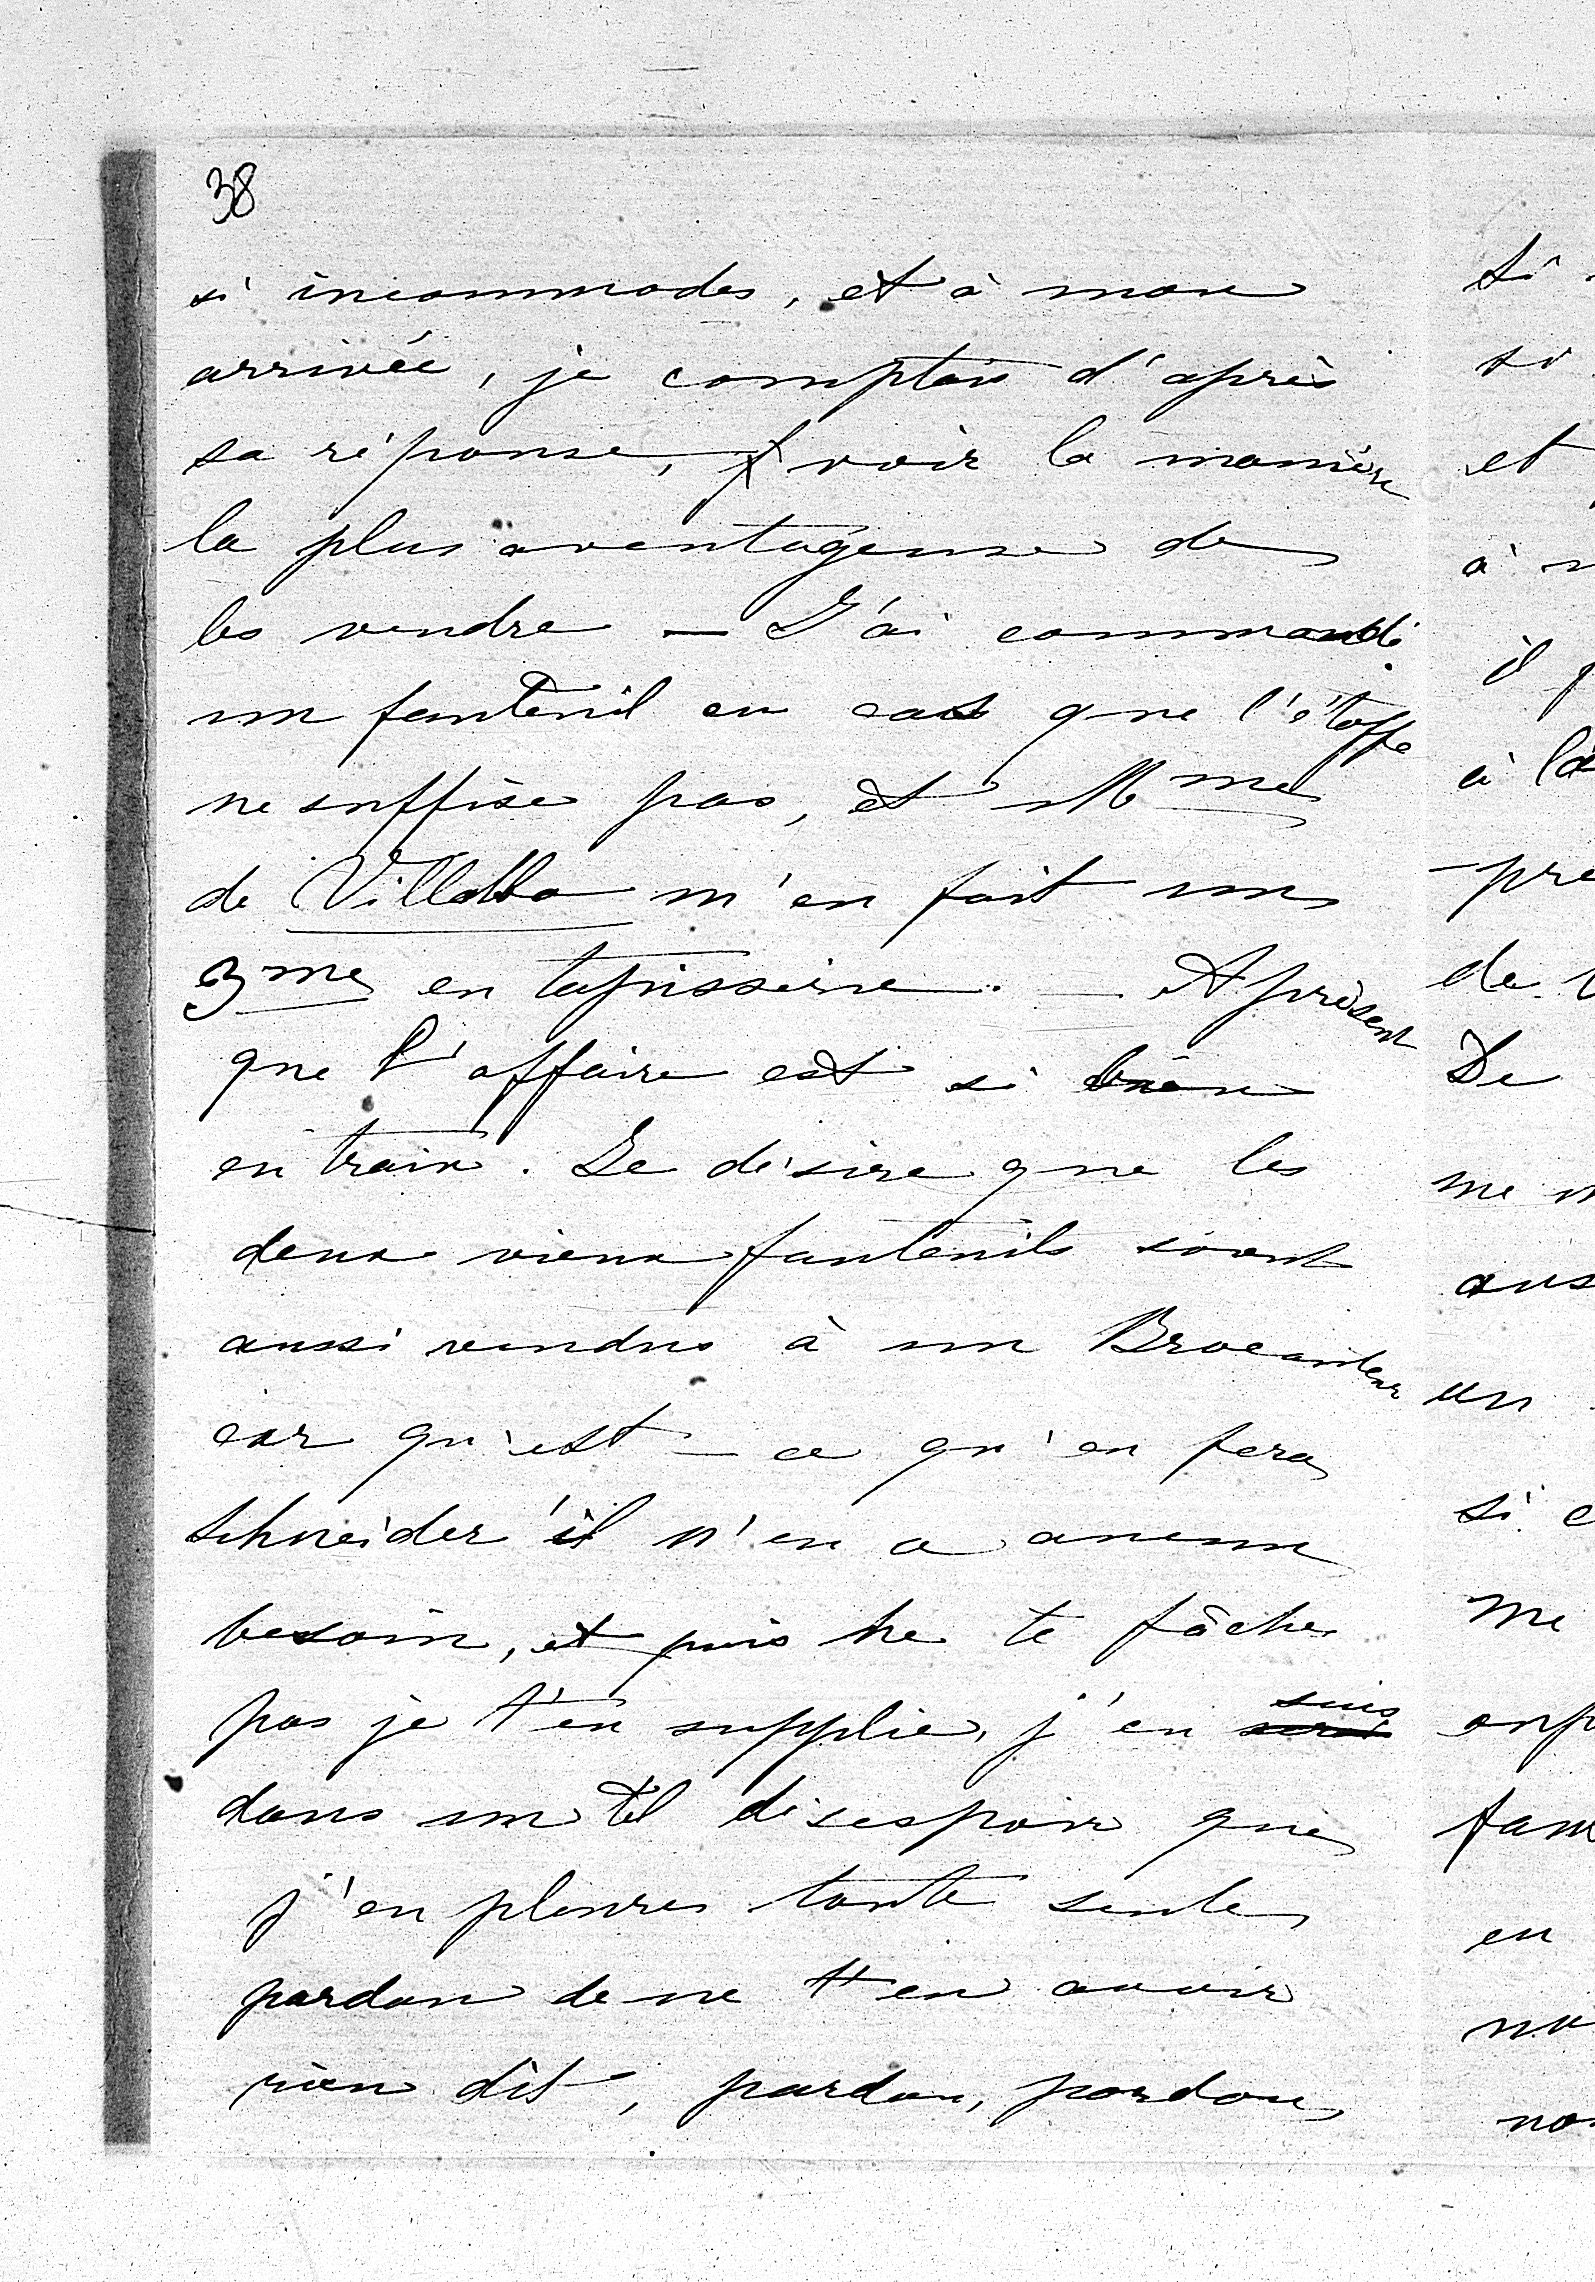 38
si incommodes, et à mon
arrivée, je comptais d'après
sa réponse, voir la manière
la plus avantageuse de
les vendre — J'ai commandé
un fauteuil en cas que l'étoffe
ne suffise pas, et Mme
de Villalba m'en fait un
3me en tapisserie. — Aprèsent
que l'affaire est si bien
en train. Je désire que les
deux vieux fauteuils soient
aussi vendus à un Brocanteur
car qu'est-ce qu'en fera
Schneider il n'en a aucun
besoin, et puis ne te fâche
pas je t'en supplie, j'en suis
dans un tel désespoir que
j'en pleure toute seule
pardon de ne t'en avoir
rien dit, pardon, pardon,
si
et
à
il
à la
-pre
de
De
me
aus
un
si c
me
enp
fam
en